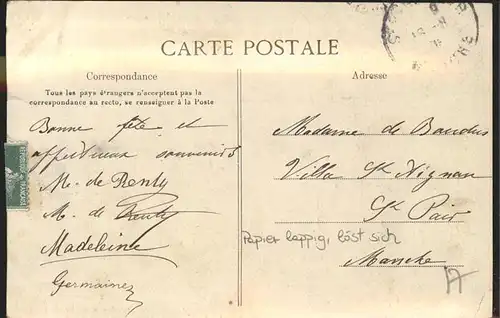 CARTE POSTALE
Correspondance
Tous les pays étrangers n'acceptent pas la
correspondance au recto, se renseigner à la Poste
Adresse
Bonne fête et
affectueux souvenirs
M. de Renty
M. de Renty
Madeleine
Germaine
Madame de Baudus
Villa St Aignan
St Pair
Manche
Papier lappig, löst sich